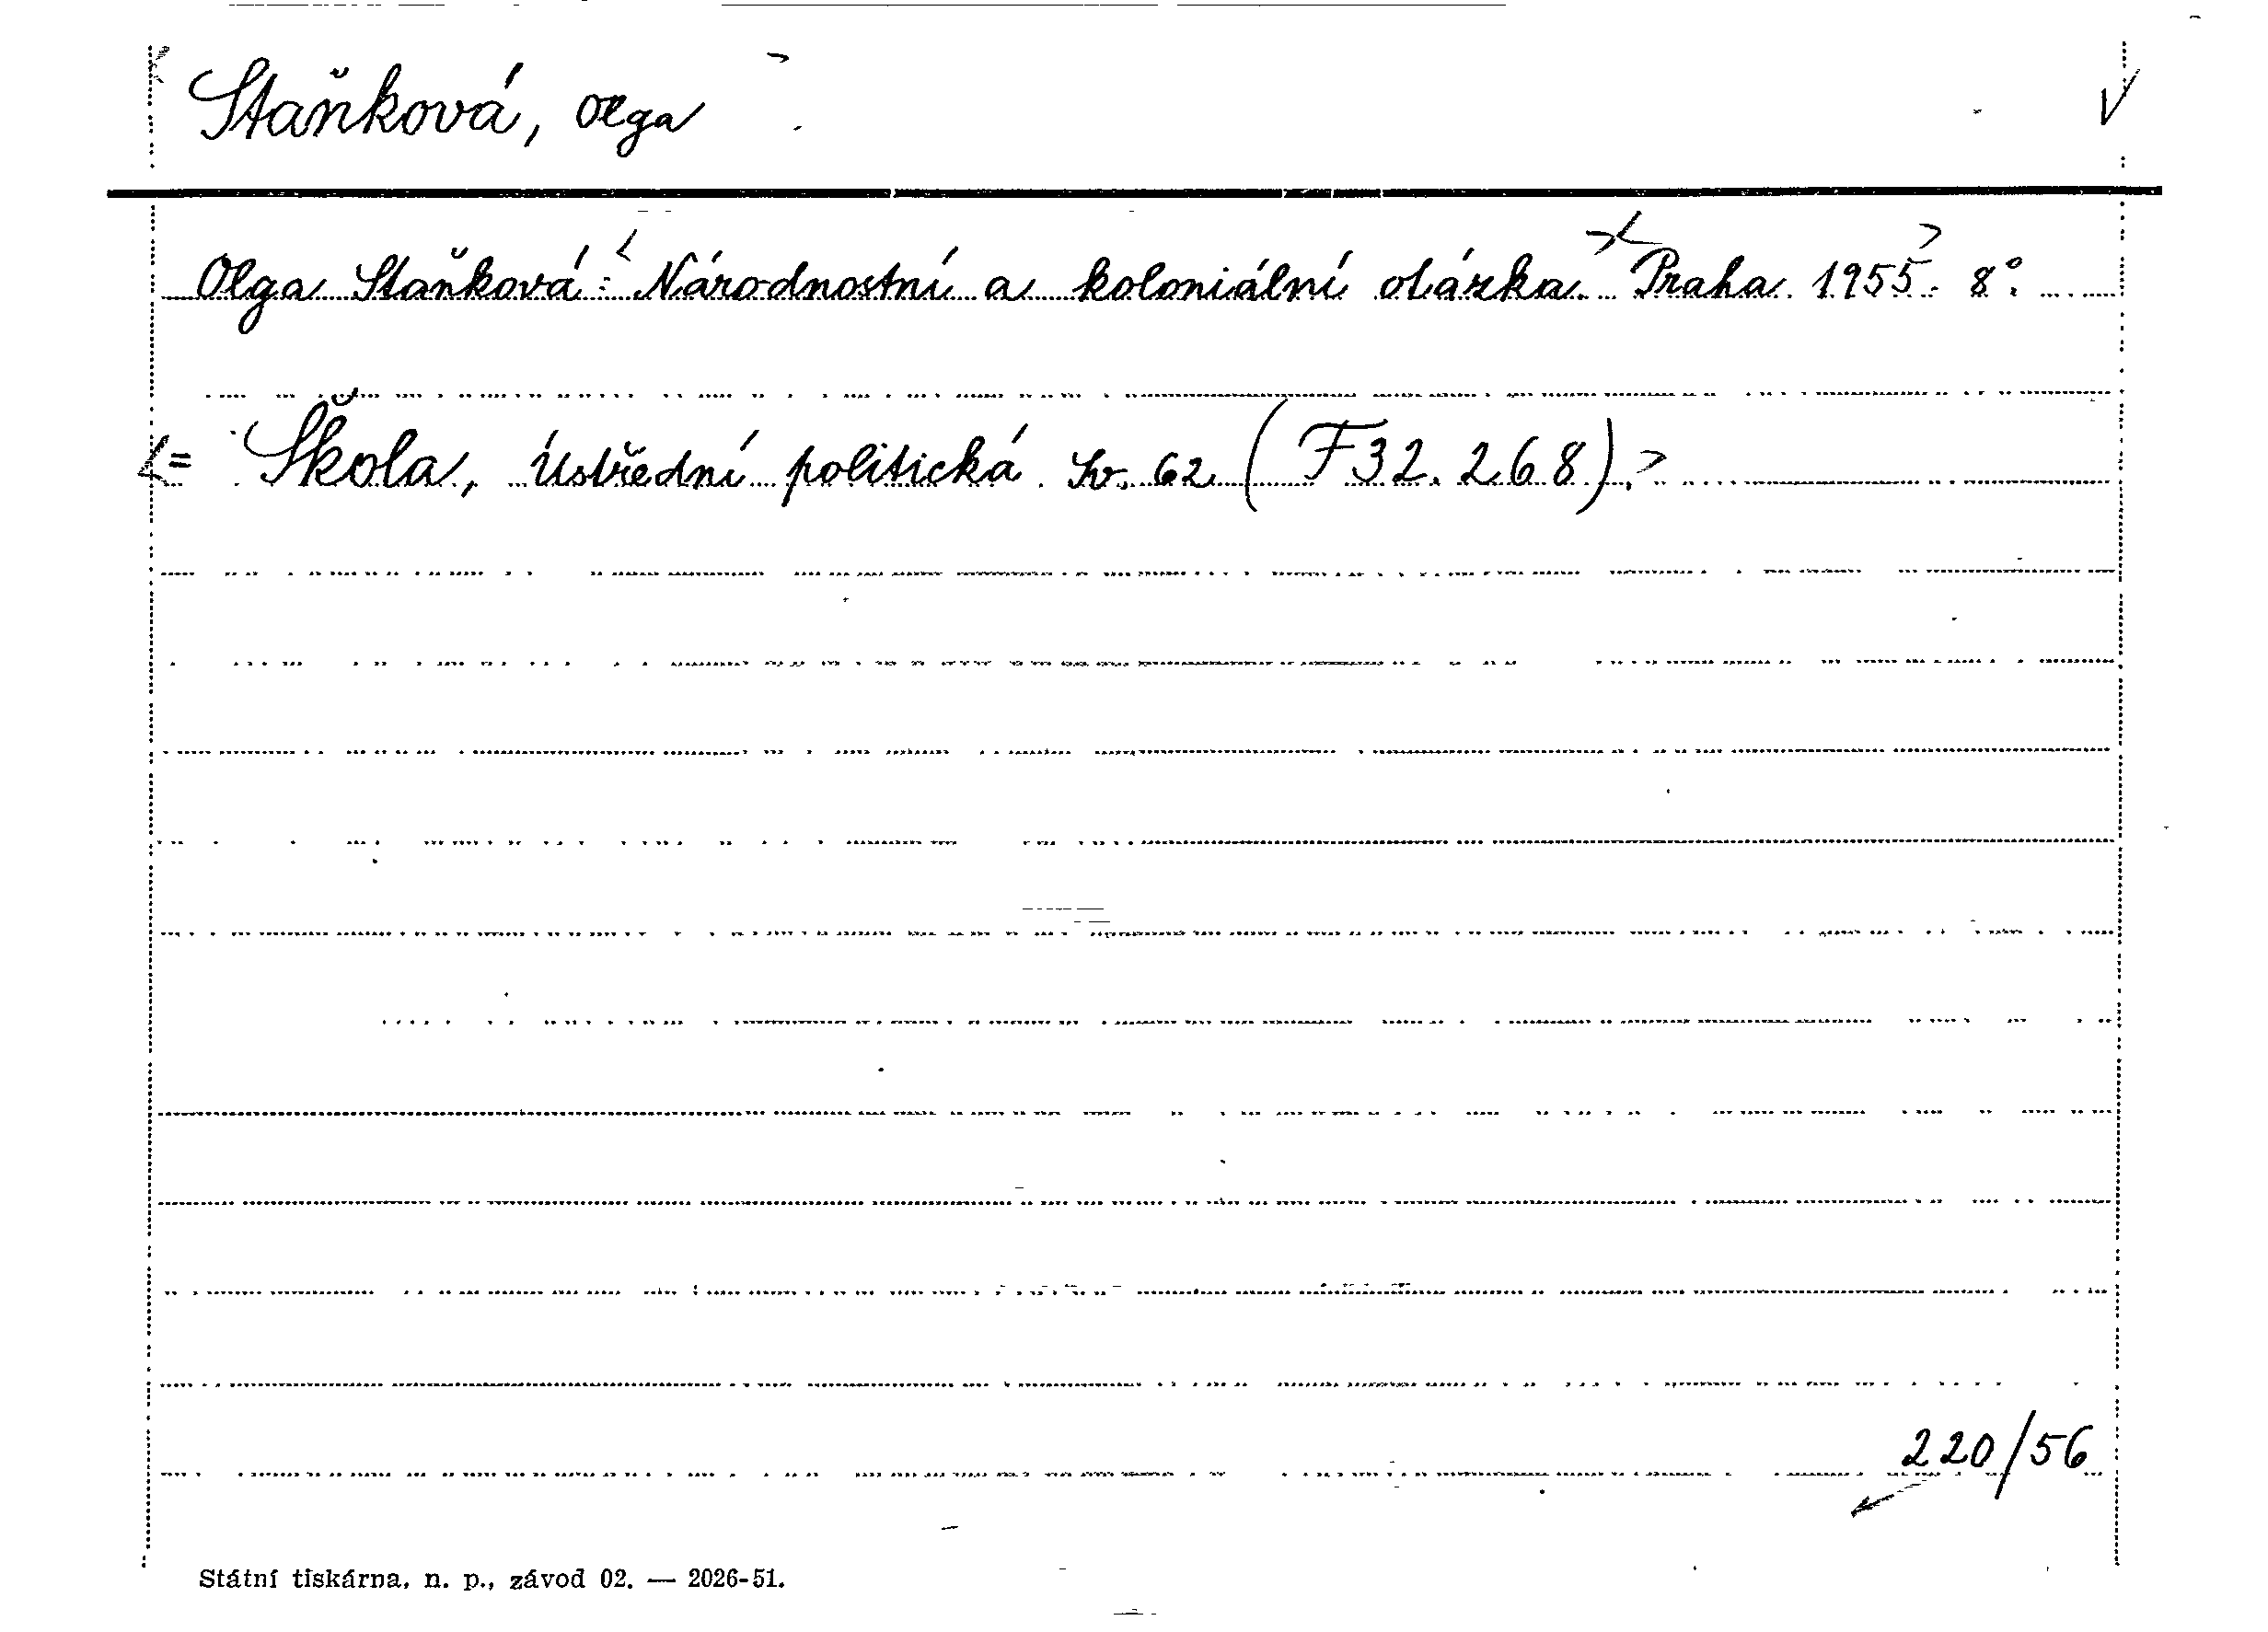 Staňková, Olga
Olga Staňková: Národnostní a koloniální otázka. Praha 1955. 8°.
= Škola, Ústřední politická sv. 62 (F 32.268).
220/56
Státní tiskárna, n. p., závod 02. — 2026-51.